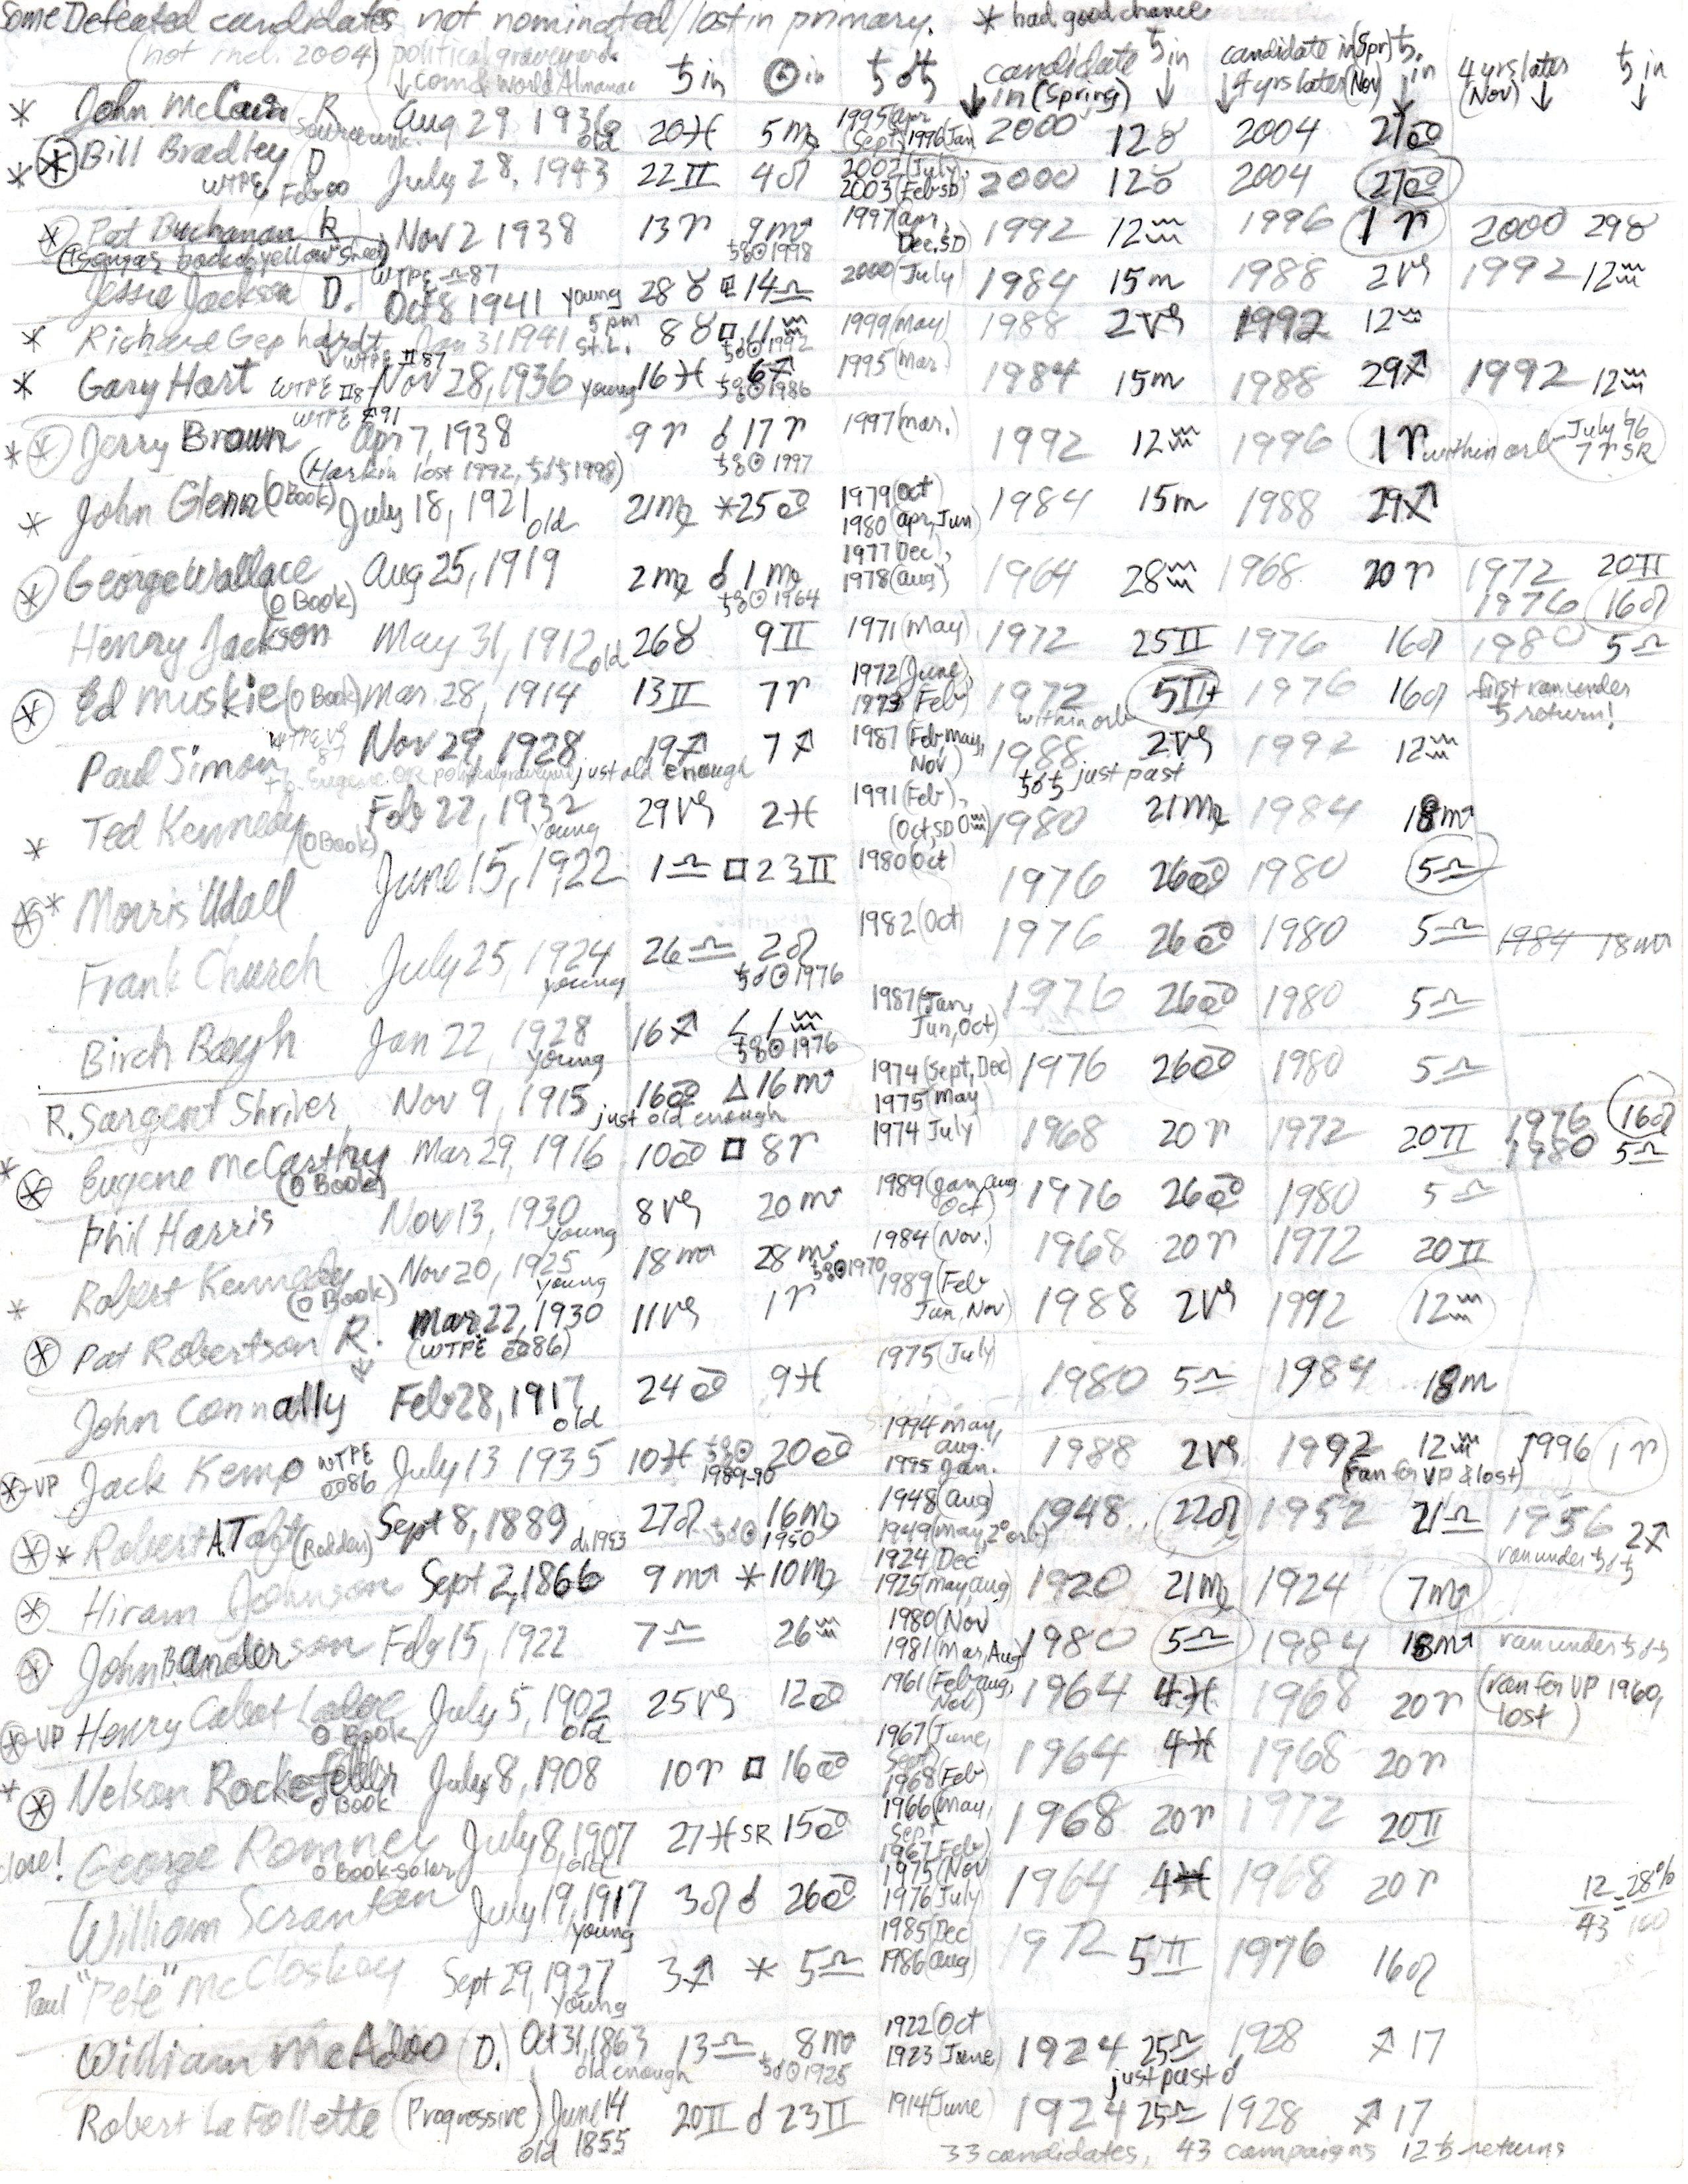 Some Defeated candidates not nominated/lost in primary. * had good chance
(not incl. 2004) political graveyard ♄ in ☉ in ♄☌♄ candidate in (Spring) ♄ in candidate in (Spr) 4 yrs later (Nov) ♄ in 4 yrs later (Nov) ♄ in
↓ com & World Almanac
* John McCain R Aug 29, 1936 old 20♓ 5♍ 1995 (Apr Sept), 1996 (Jan 2000 12♉ 2004 27♋
* Bill Bradley D July 28, 1943 22♊ 4♌ 2002 (July), 2003 (Feb SD) 2000 12♉ 2004 27♋
WTPE Feb 00
* Pat Buchanan R Nov 2 1938 13♈ 9♏ 1997 (Apr, Dec. SD) 1992 12♒ 1996 1♈ 2000 29♉
♄☍☉ 1998
Jessie Jackson D. Oct 8 1941 young 28♉ 14♎ 2000 (July 1984 15♏ 1988 2♑ 1992 12♒
WTPE ♎87
* Richard Gephardt Jan 31 1941 5 pm St. L. 8♉ □ 11♒ 1999 (May) 1988 2♑ 1992 12♒
WTPE ♊87 ♄☌☉ 1992
* Gary Hart WTPE ♊87 Nov 28, 1936 young 16♓ 6♐ 1995 (Mar. 1984 15♏ 1988 29♐ 1992 12♒
WTPE ♐91 ♄☍☉ 1986
* Jerry Brown Apr 7, 1938 9♈ ☌ 17♈ 1997 (mar.) 1992 12♒ 1996 1♈ within orb July '96 7♈ SR
(Harkin lost 1992, ♄☌♄ 1998) ♄☍☉ 1997
* John Glenn (O Book) July 18, 1921 old 21♍ * 25♋ 1979 (Oct 1980 (Apr, Jun) 1984 15♏ 1988 29♐
* George Wallace (O Book) Aug 25, 1919 2♍ ☌ 1♍ 1977 Dec), 1978 (Aug) 1964 28♒ 1968 20♈ 1972 20♊
♄☍☉ 1964 1976 16♌
Henry Jackson May 31, 1912 old 26♉ 9♊ 1971 (May) 1972 25♊ 1976 16♌ 1980 5♎
* Ed Muskie (O Book) Mar. 28, 1914 13♊ 7♈ 1972 (June), 1973 Feb) 1972 5♊ 1976 16♌ first ran under ♄ return!
within orb
Paul Simon Nov 29, 1928 just old enough 19♐ 7♐ 1987 (Feb, May, Nov) 1988 2♑ 1992 12♒
♄☌♄ just past
* Ted Kennedy (O Book) Feb 22, 1932 young 29♑ 2♓ 1991 (Feb), (Oct, SD 0♒) 1980 21♍ 1984 18♏
* Morris Udall June 15, 1922 1♎ □ 23♊ 1980 (Oct) 1976 26♋ 1980 5♎
Frank Church July 25, 1924 young 26♎ 2♌ 1982 (Oct) 1976 26♋ 1980 5♎ 1984 18♏
♄☌☉ 1976
Birch Bayh Jan 22, 1928 young 16♐ ∠ 1♒ 1987 (Jan, Jun, Oct) 1976 26♋ 1980 5♎
♄☍☉ 1976
R. Sargent Shriver Nov 9, 1915 just old enough 16♋ △ 16♏ 1974 (Sept, Dec) 1975 (May 1976 26♋ 1980 5♎
* Eugene McCarthy (O Book) Mar 29, 1916 10♋ □ 8♈ 1974 July) 1968 20♈ 1972 20♊ 1976 16♌
1980 5♎
Phil Harris Nov 13, 1930 young 8♑ 20♏ 1989 (Jan, Aug Oct) 1976 26♋ 1980 5♎
* Robert Kennedy (O Book) Nov 20, 1925 young 18♏ 28♏ 1984 (Nov.) 1968 20♈ 1972 20♊
♄☍☉ 1970
* Pat Robertson R. Mar. 22, 1930 11♑ 1♈ 1989 (Feb Jun, Nov) 1988 2♑ 1992 12♒
(WTPE ♋86)
John Connally Feb 28, 1917 old 24♋ 9♓ 1975 (July) 1980 5♎ 1984 18♏
*-VP Jack Kemp WTPE ♋86 July 13 1935 10♓ ♄☍☉ 1989-90 20♋ 1994 May, Aug. 1995 Jan. 1988 2♑ 1992 12♒ 1996 1♈
(ran for VP & lost)
* * Robert A. Taft (Rodden) Sept 8, 1889 d. 1953 27♌ ♄☌☉ 1950 16♍ 1948 (Aug) 1949 (May, 2° orb) 1948 22♌ 1952 21♎ 1956 2♐
ran under ♄☌♄
* Hiram Johnson Sept 2, 1866 9♏ * 10♍ 1924 Dec 1925 (May, Aug) 1920 21♍ 1924 7♏
* John B Anderson Feb 15, 1922 7♎ 26♒ 1980 (Nov 1981 (Mar, Aug) 1980 5♎ 1984 18♏ ran under ♄☌♄
*-VP Henry Cabot Lodge O Book July 5, 1902 old 25♑ 12♋ 1961 (Feb, Aug, Nov) 1964 4♓ 1968 20♈ (ran for VP 1960, lost)
* * Nelson Rockefeller O Book July 8, 1908 10♈ □ 16♋ 1967 (June, Sept) 1968 (Feb) 1964 4♓ 1968 20♈
close! George Romney O Book-solar July 8, 1907 old 27♓ SR 15♋ 1966 (May, Sept 1967 Feb) 1968 20♈ 1972 20♊
William Scranton July 19, 1917 young 3♌ ☌ 26♋ 1975 (Nov 1976 July) 1964 4♓ 1968 20♈ 12/43 = 28%/100
Paul "Pete" McCloskey Sept 29, 1927 young 3♐ * 5♎ 1985 (Dec 1986 (Aug) 1972 5♊ 1976 16♌
William McAdoo (D.) Oct 31, 1863 old enough 13♎ 8♏ 1922 (Oct 1923 (June) 1924 25♎ 1928 ♐17
♄☌☉ 1925 just past ☌
Robert La Follette (Progressive) June 14 1855 old 20♊ ☌ 23♊ 1914 (June) 1924 25♎ 1928 ♐17
33 candidates, 43 campaigns 12 ♄ returns